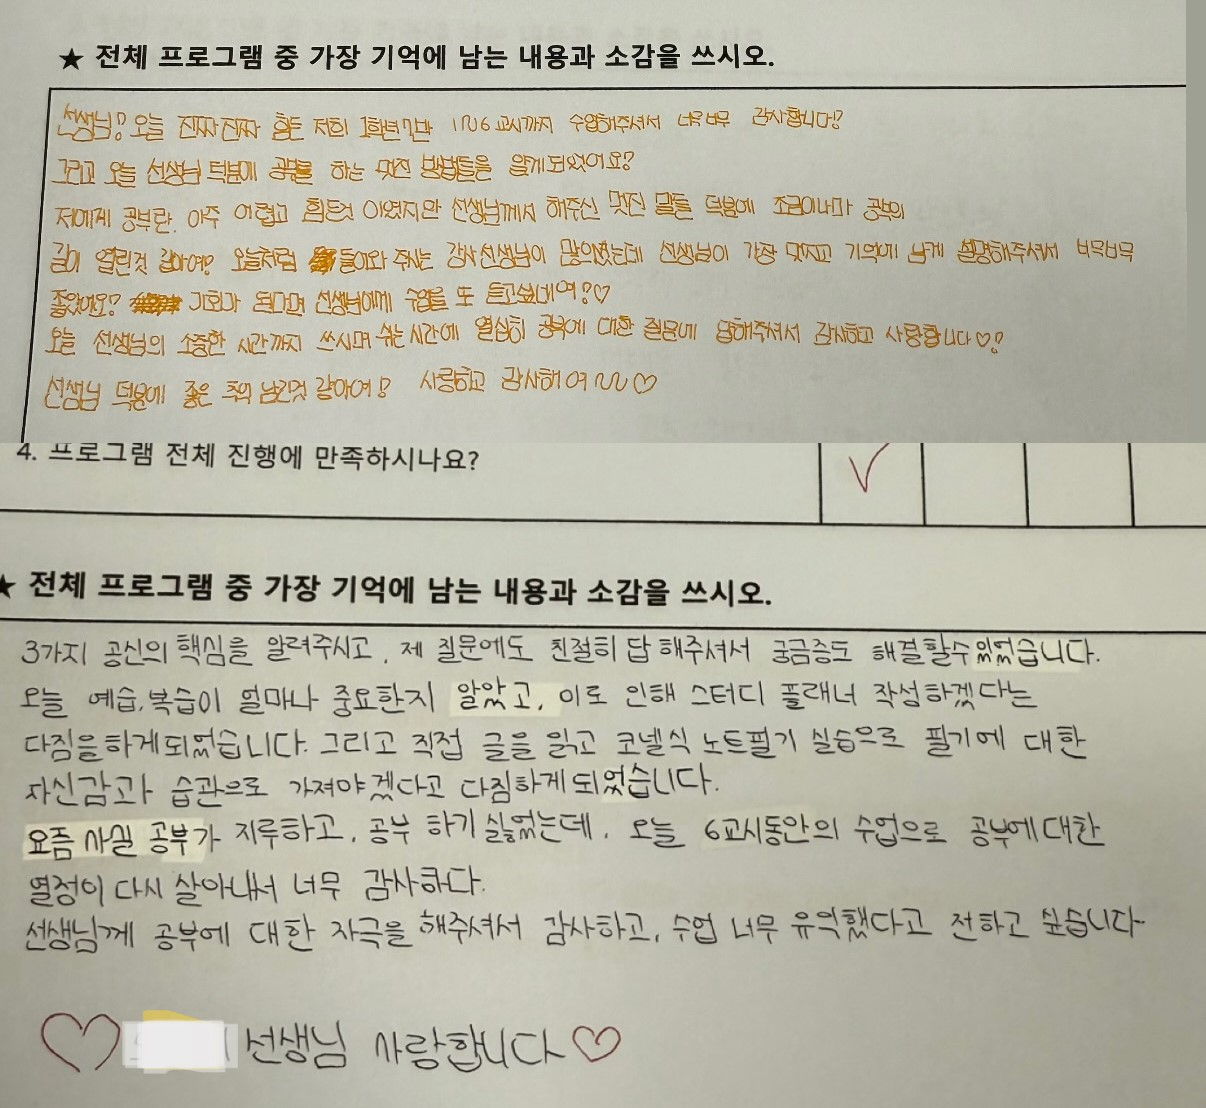 ★ 전체 프로그램 중 가장 기억에 남는 내용과 소감을 쓰시오.
선생님! 오늘 진짜진짜 힘든 저희 1학년 7반 1~6교시까지 수업해주셔서 너무너무 감사합니다!
그리고 오늘 선생님 덕분에 공부를 하는 멋진 방법들을 알게되었어요!
저에게 공부란. 아주 어렵고 힘든것 이였지만 선생님께서 해주신 멋진 말들 덕분에 조금이나마 공부의
길이 열린것 같아여! 오늘처럼 들어와 주시는 강사선생님이 많았었는데 선생님이 가장 멋지고 기억에 남게 설명해주셔서 너무너무
좋았어요! 기회가 된다면 선생님에게 수업을 또 듣고싶네여!♡
오늘 선생님의 소중한 시간까지 쓰시며 쉬는 시간에 열심히 공부에 대한 질문에 답해주셔서 감사하고 사랑합니다♡!
선생님 덕분에 좋은 추억 남긴것 같아여! 사랑하고 감사해여~~♡
4. 프로그램 전체 진행에 만족하시나요? ✓
★ 전체 프로그램 중 가장 기억에 남는 내용과 소감을 쓰시오.
3가지 공신의 핵심을 알려주시고, 제 질문에도 친절히 답 해주셔서 궁금증도 해결할수있었습니다.
오늘 예습,복습이 얼마나 중요한지 알았고, 이로 인해 스터디 플래너 작성하겠다는
다짐을하게되었습니다. 그리고 직접 글을 읽고 코넬식 노트필기 실습으로 필기에 대한
자신감과 습관으로 가져야겠다고 다짐하게되었습니다.
요즘 사실 공부가 지루하고, 공부 하기 싫었는데, 오늘 6교시동안의 수업으로 공부에대한
열정이 다시 살아나서 너무 감사하다.
선생님께 공부에 대한 자극을 해주셔서 감사하고, 수업 너무 유익했다고 전하고 싶습니다.
♡ 선생님 사랑합니다♡